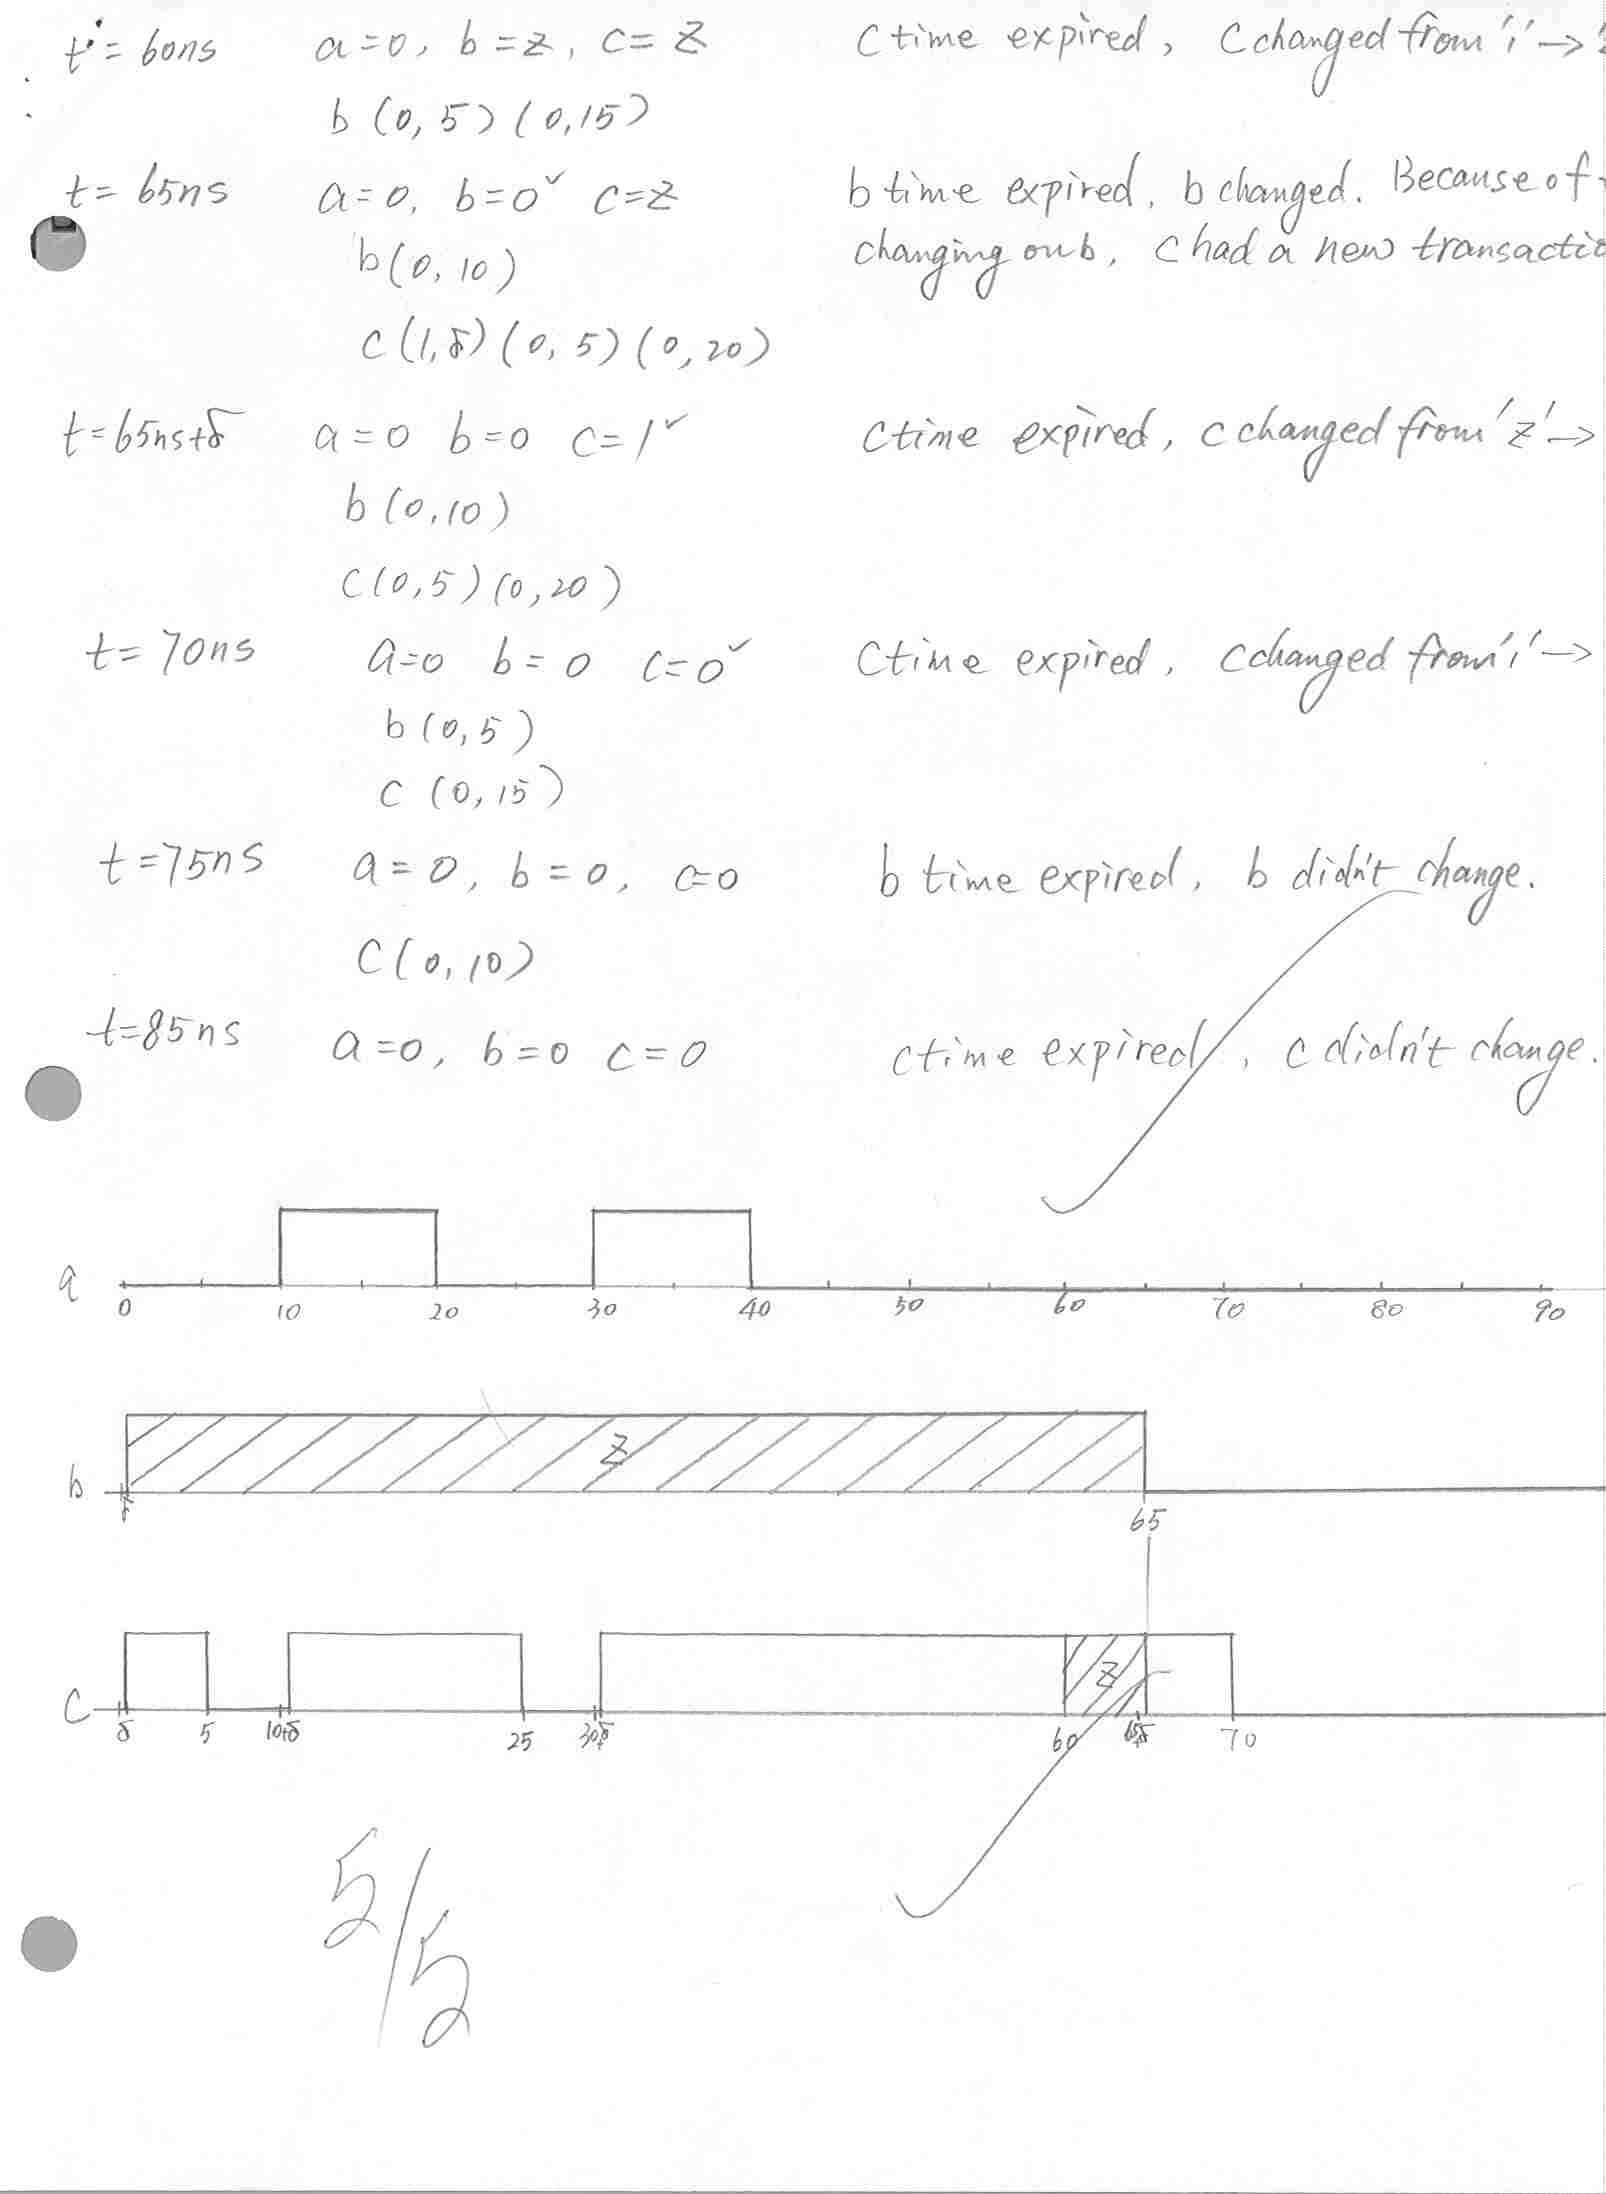 t = 60ns a=0, b=z, c=z c time expired, c changed from '1' →
b (0,5) (0,15)
t = 65ns a=0, b=0 c=z b time expired, b changed. Because of
b(0,10) changing on b, c had a new transactio
c (1,δ) (0,5) (0,20)
t=65ns+δ a=0 b=0 c=1 c time expired, c changed from 'z' →
b(0,10)
c(0,5) (0,20)
t= 70ns a=0 b=0 c=0 c time expired, c changed from '1' →
b(0,5)
c (0,15)
t=75ns a=0, b=0, c=0 b time expired, b didn't change.
c(0,10)
t=85ns a=0, b=0 c=0 c time expired, c didn't change.
a
0 10 20 30 40 50 60 70 80 90
z
b
δ
65
z
c
δ 5 10+δ 25 30+δ 60 65+δ 70
5/5